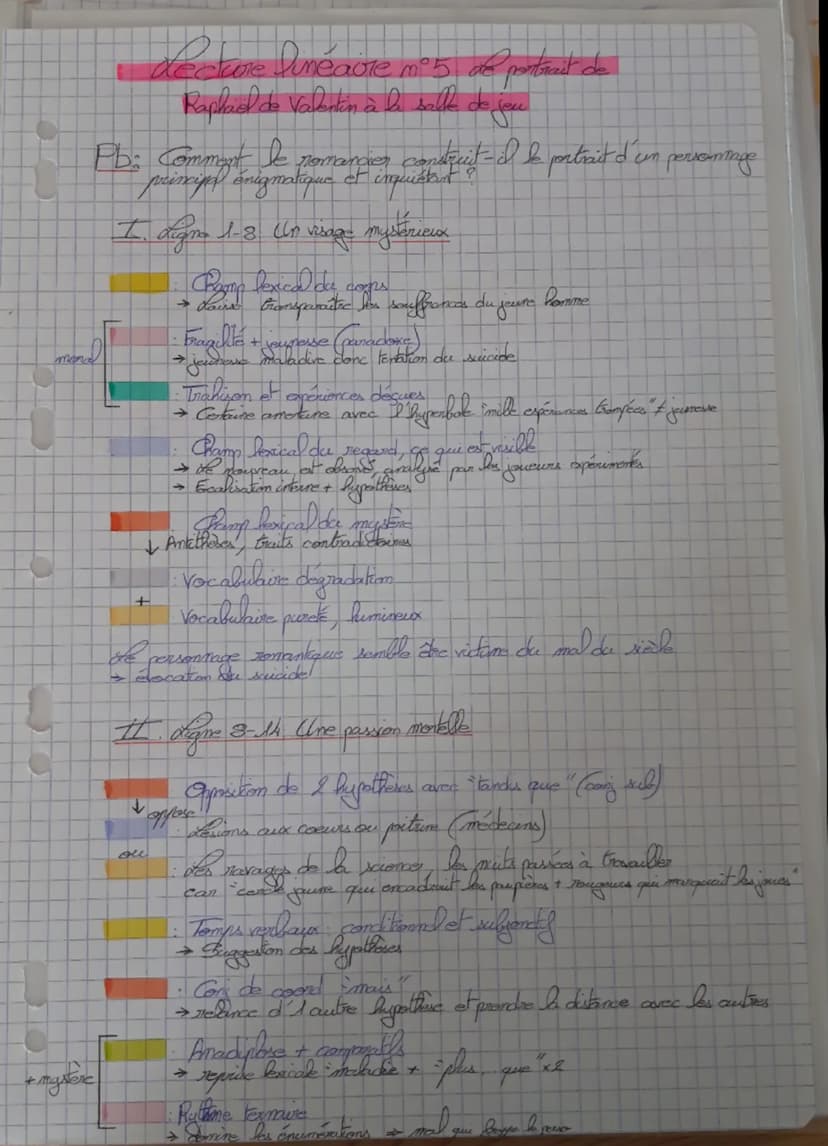 Lecture linéaire n°5 Le portrait de
Raphaël de Valentin à la salle de jeu
Pb: Comment le romancier construit-il le portrait d'un personnage
principal énigmatique et inquiétant ?
I. Ligne 1-8 Un visage mystérieux
: Champ lexical du corps
→ transparaître les souffrances du jeune homme
: Fragilité + jeunesse (paradoxe)
moral
→ jeunesse maladive donc tentation du suicide
: Trahison et expériences déçues
→ Certaine amertume avec l'hyperbole "mille espérances trompées" ≠ jeunesse
: Champ lexical du regard, ce qui est visible
→ Le nouveau est observé, analysé par les joueurs expérimentés
→ Focalisation interne + hypothèses
: Champ lexical du mystère
↓ Antithèses, traits contradictoires
: Vocabulaire dégradation
+
: Vocabulaire pureté, lumineux
Le personnage romantique semble être victime du mal du siècle
→ évocation du suicide
II. Ligne 8-14 Une passion mortelle
: Opposition de 2 hypothèses avec "tandis que" (conj sub)
↓ oppose
: Lésions aux coeurs ou poitrine (médecins)
ou
: Les ravages de la science, les nuits passées à travailler
car "cercle jaune qui encadrait les paupières + rougeurs qui marquait les joues"
: Temps verbaux : conditionnel et subjonctif
→ Suggestion des hypothèses
: Conj de coord "mais"
→ relance d'1 autre hypothèse et prendre la distance avec les autres
: Anadiplose + comparatifs
+ mystère
→ reprise lexicale "maladie" + "plus que" x2
: Rythme ternaire
→ les énumérations → mal que